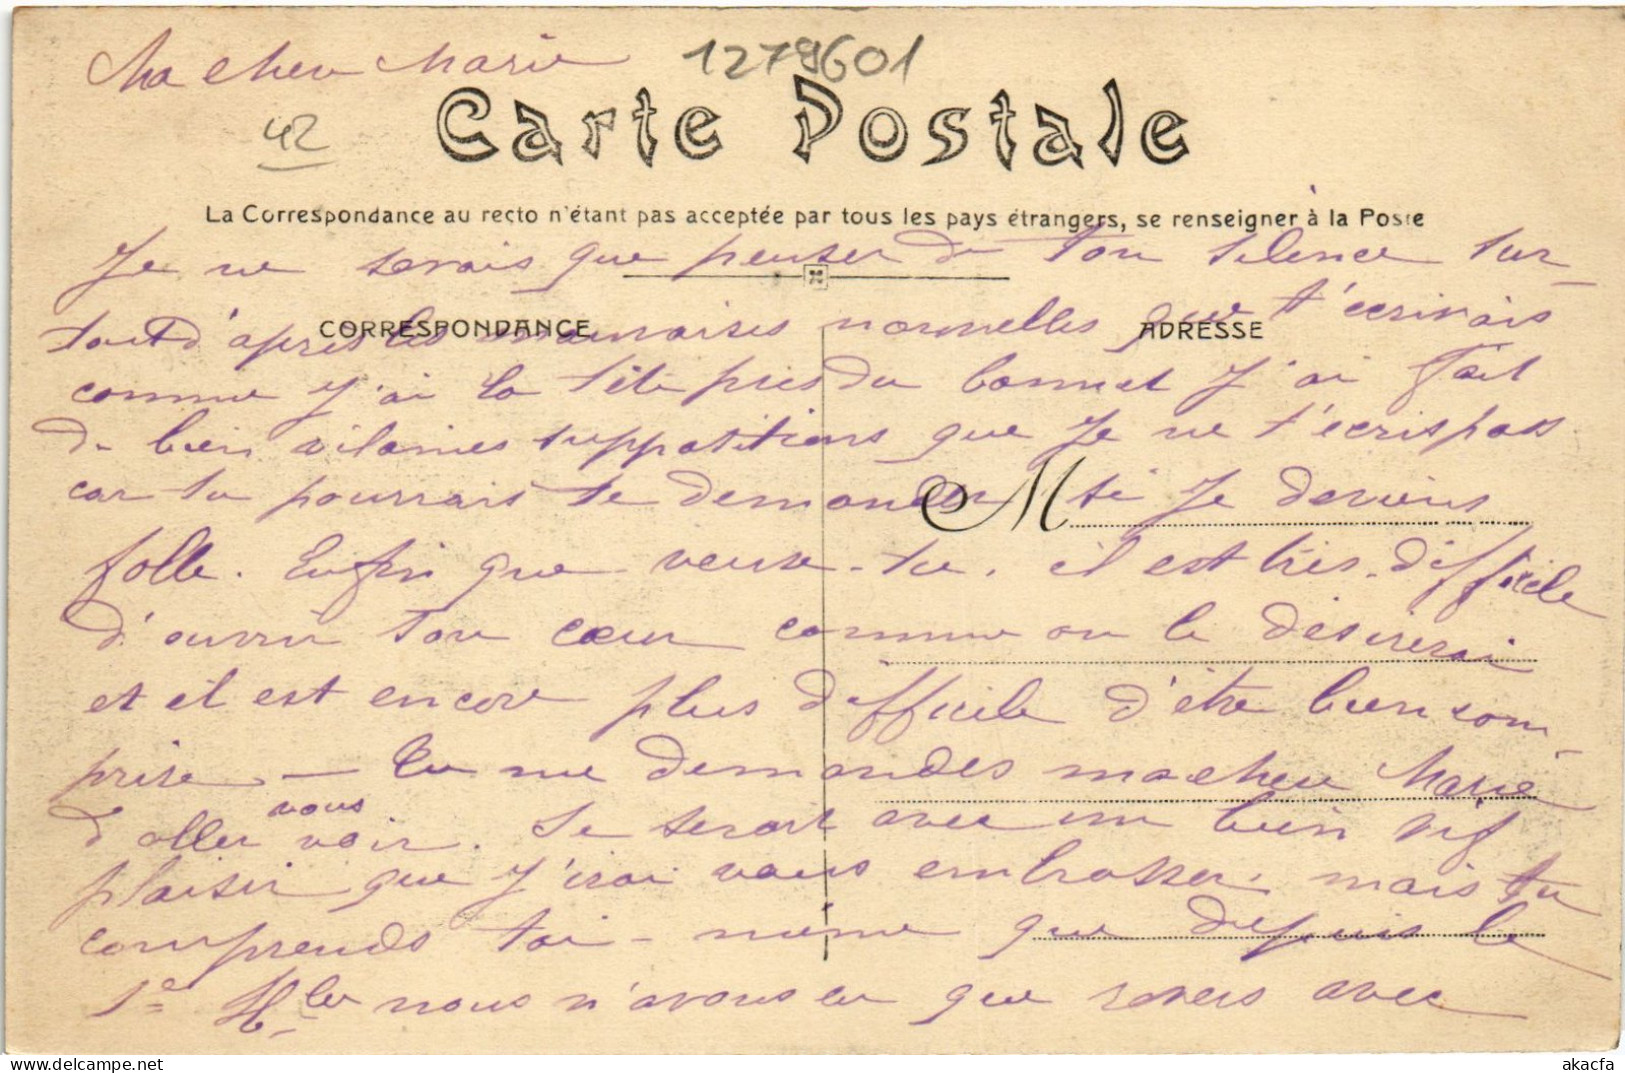 Ma cher Marie
1279601
42
Carte Postale
La Correspondance au recto n'étant pas acceptée par tous les pays étrangers, se renseigner à la Poste
Je ne savais que penser de ton silence sur-
tout d'après les mauvaises nouvelles que t'écrivais
CORRESPONDANCE
ADRESSE
comme j'ai la tête près du bonnet j'ai fait
de bien vilaines suppositions que je ne t'écris pas
car tu pourrais te demander si je deviens
M
folle. Enfin que veux-tu. il est très difficile
d'ouvrir ton cœur comme on le désirerai
et il est encore plus difficile d'être bien com-
prise — tu me demandes ma cher Marie
d'aller vous voir. Se serait avec un bien vif
plaisir que j'irai vous embrasser. mais tu
comprends toi-même que depuis le
1e nous n'avons eu que revers avec
akacfa